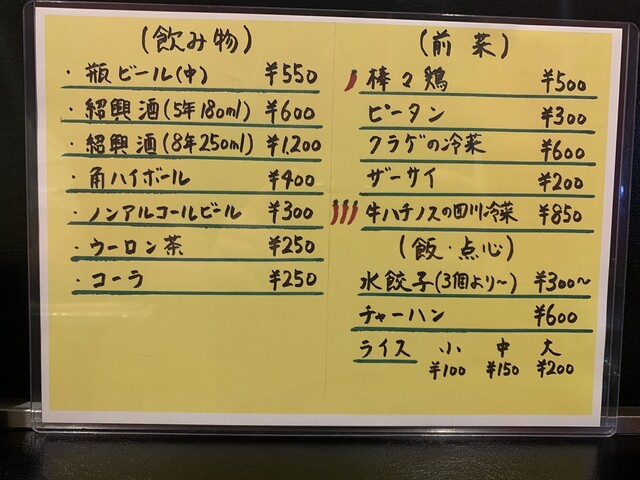 (飲み物)
・瓶ビール(中) ¥550
・紹興酒(5年180ml) ¥600
・紹興酒(8年250ml) ¥1,200
・角ハイボール ¥400
・ノンアルコールビール ¥300
・ウーロン茶 ¥250
・コーラ ¥250
(前菜)
棒々鶏 ¥500
ピータン ¥300
クラゲの冷菜 ¥600
ザーサイ ¥200
牛ハチノスの四川冷菜 ¥850
(飯・点心)
水餃子(3個より〜) ¥300〜
チャーハン ¥600
ライス 小 中 大
¥100 ¥150 ¥200